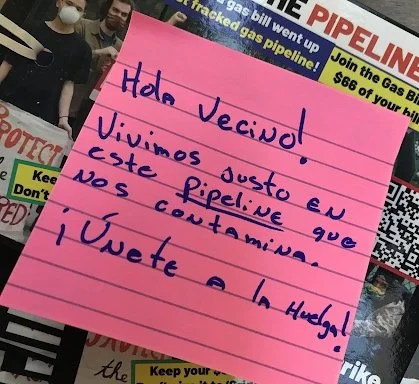 gas bill went up
fracked gas pipeline!
THE PIPELINE
Join the Gas Bil
$66 of your bill
PROTECT
Kee
Don't
Hola Vecino!
Vivimos justo en
este Pipeline que
nos contamina.
¡Únete a la Huelga!
the
Keep your $
rike